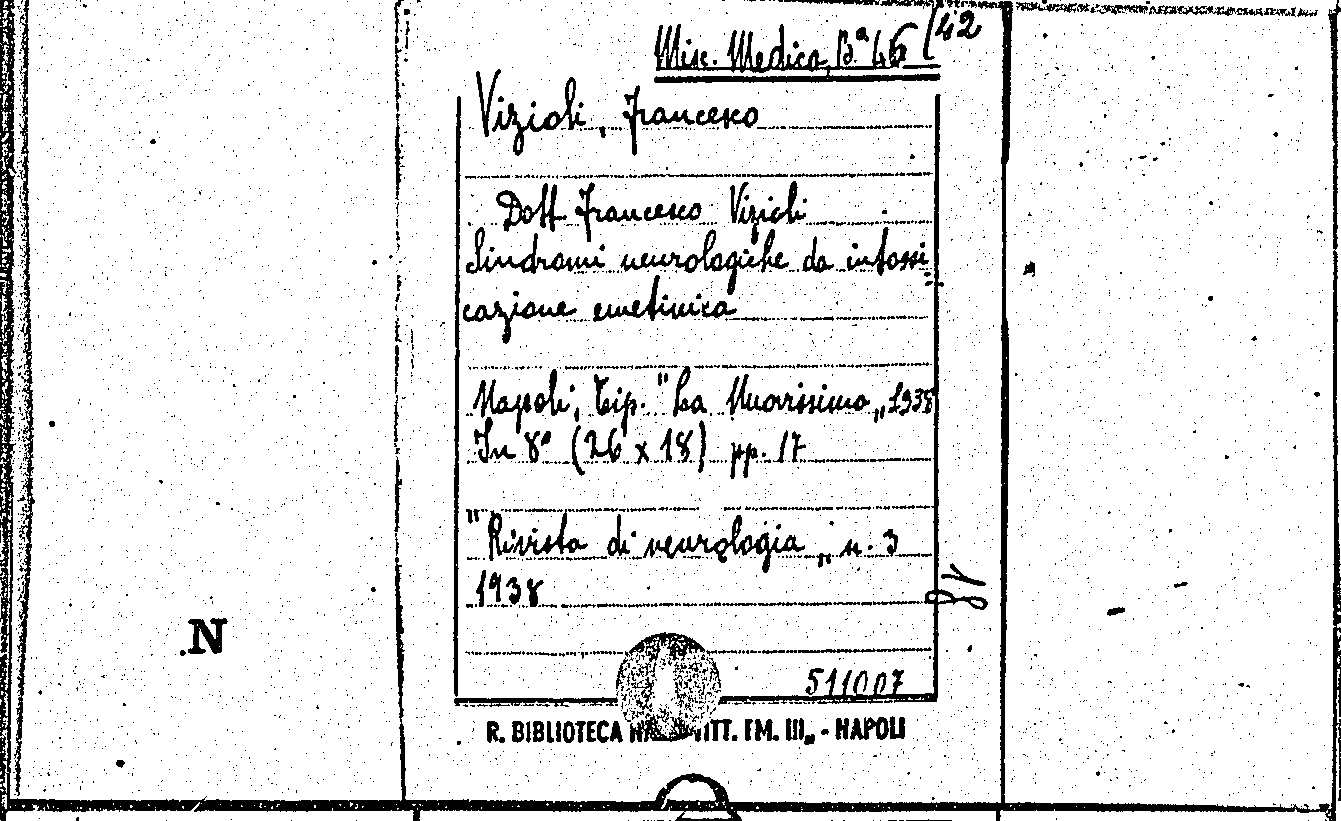 Misc. Medica B.ª 46 / 42
Vizioli, Francesco
Dott. Francesco Vizioli
Sindromi neurologiche da intossi
cazione emetinica
Napoli, Tip. "La Nuovissima„ 1938
In 8° (26 x 18) pp. 17
"Rivista di neurologia„ n. 3
1938
511007
R. BIBLIOTECA VITT. EM. III„ - NAPOLI
.N